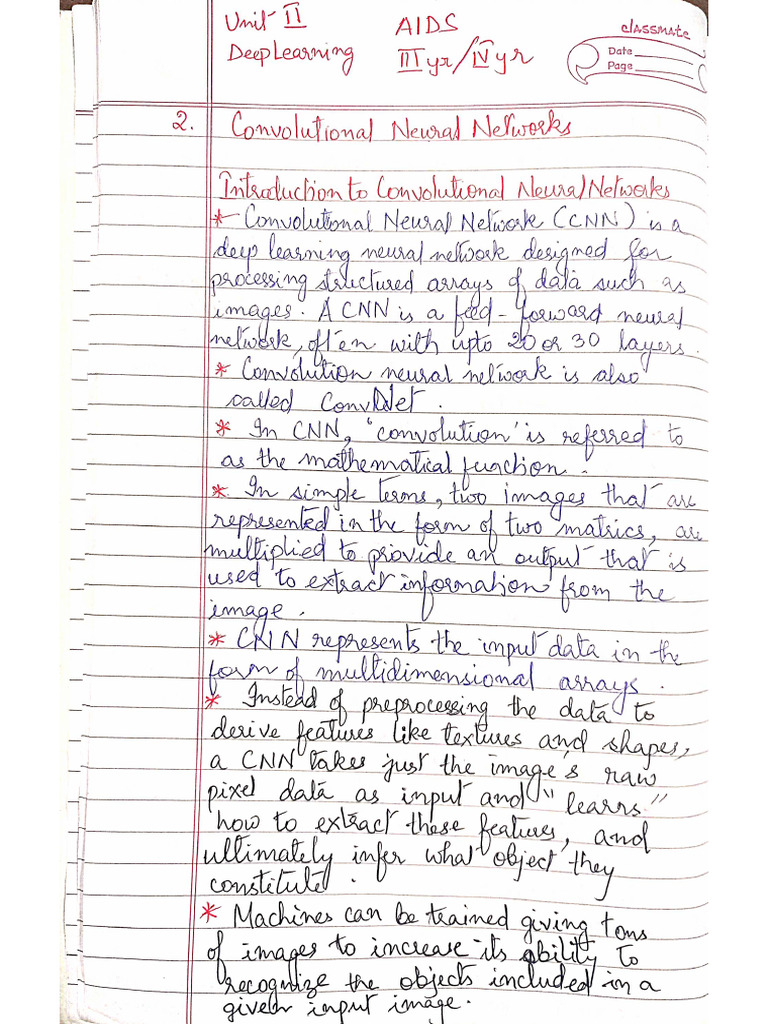 Unit II AIDS
Deep Learning III yr/IV yr
classmate
Date
Page
2. Convolutional Neural Networks
Introduction to Convolutional Neural Networks
* Convolutional Neural Network (CNN) is a
deep learning neural network designed for
processing structured arrays of data such as
images. A CNN is a feed-forward neural
network, often with upto 20 or 30 layers.
* Convolution neural network is also
called ConvNet.
* In CNN, 'convolution' is referred to
as the mathematical function.
* In simple terms, two images that are
represented in the form of two matrics, are
multiplied to provide an output that is
used to extract information from the
image.
* CNN represents the input data in the
form of multidimensional arrays.
* Instead of preprocessing the data to
derive features like textures and shapes,
a CNN takes just the image's raw
pixel data as input and "learns"
how to extract these features, and
ultimately infer what object they
constitute.
* Machines can be trained giving tons
of images to increase its ability to
recognize the objects included in a
given input image.